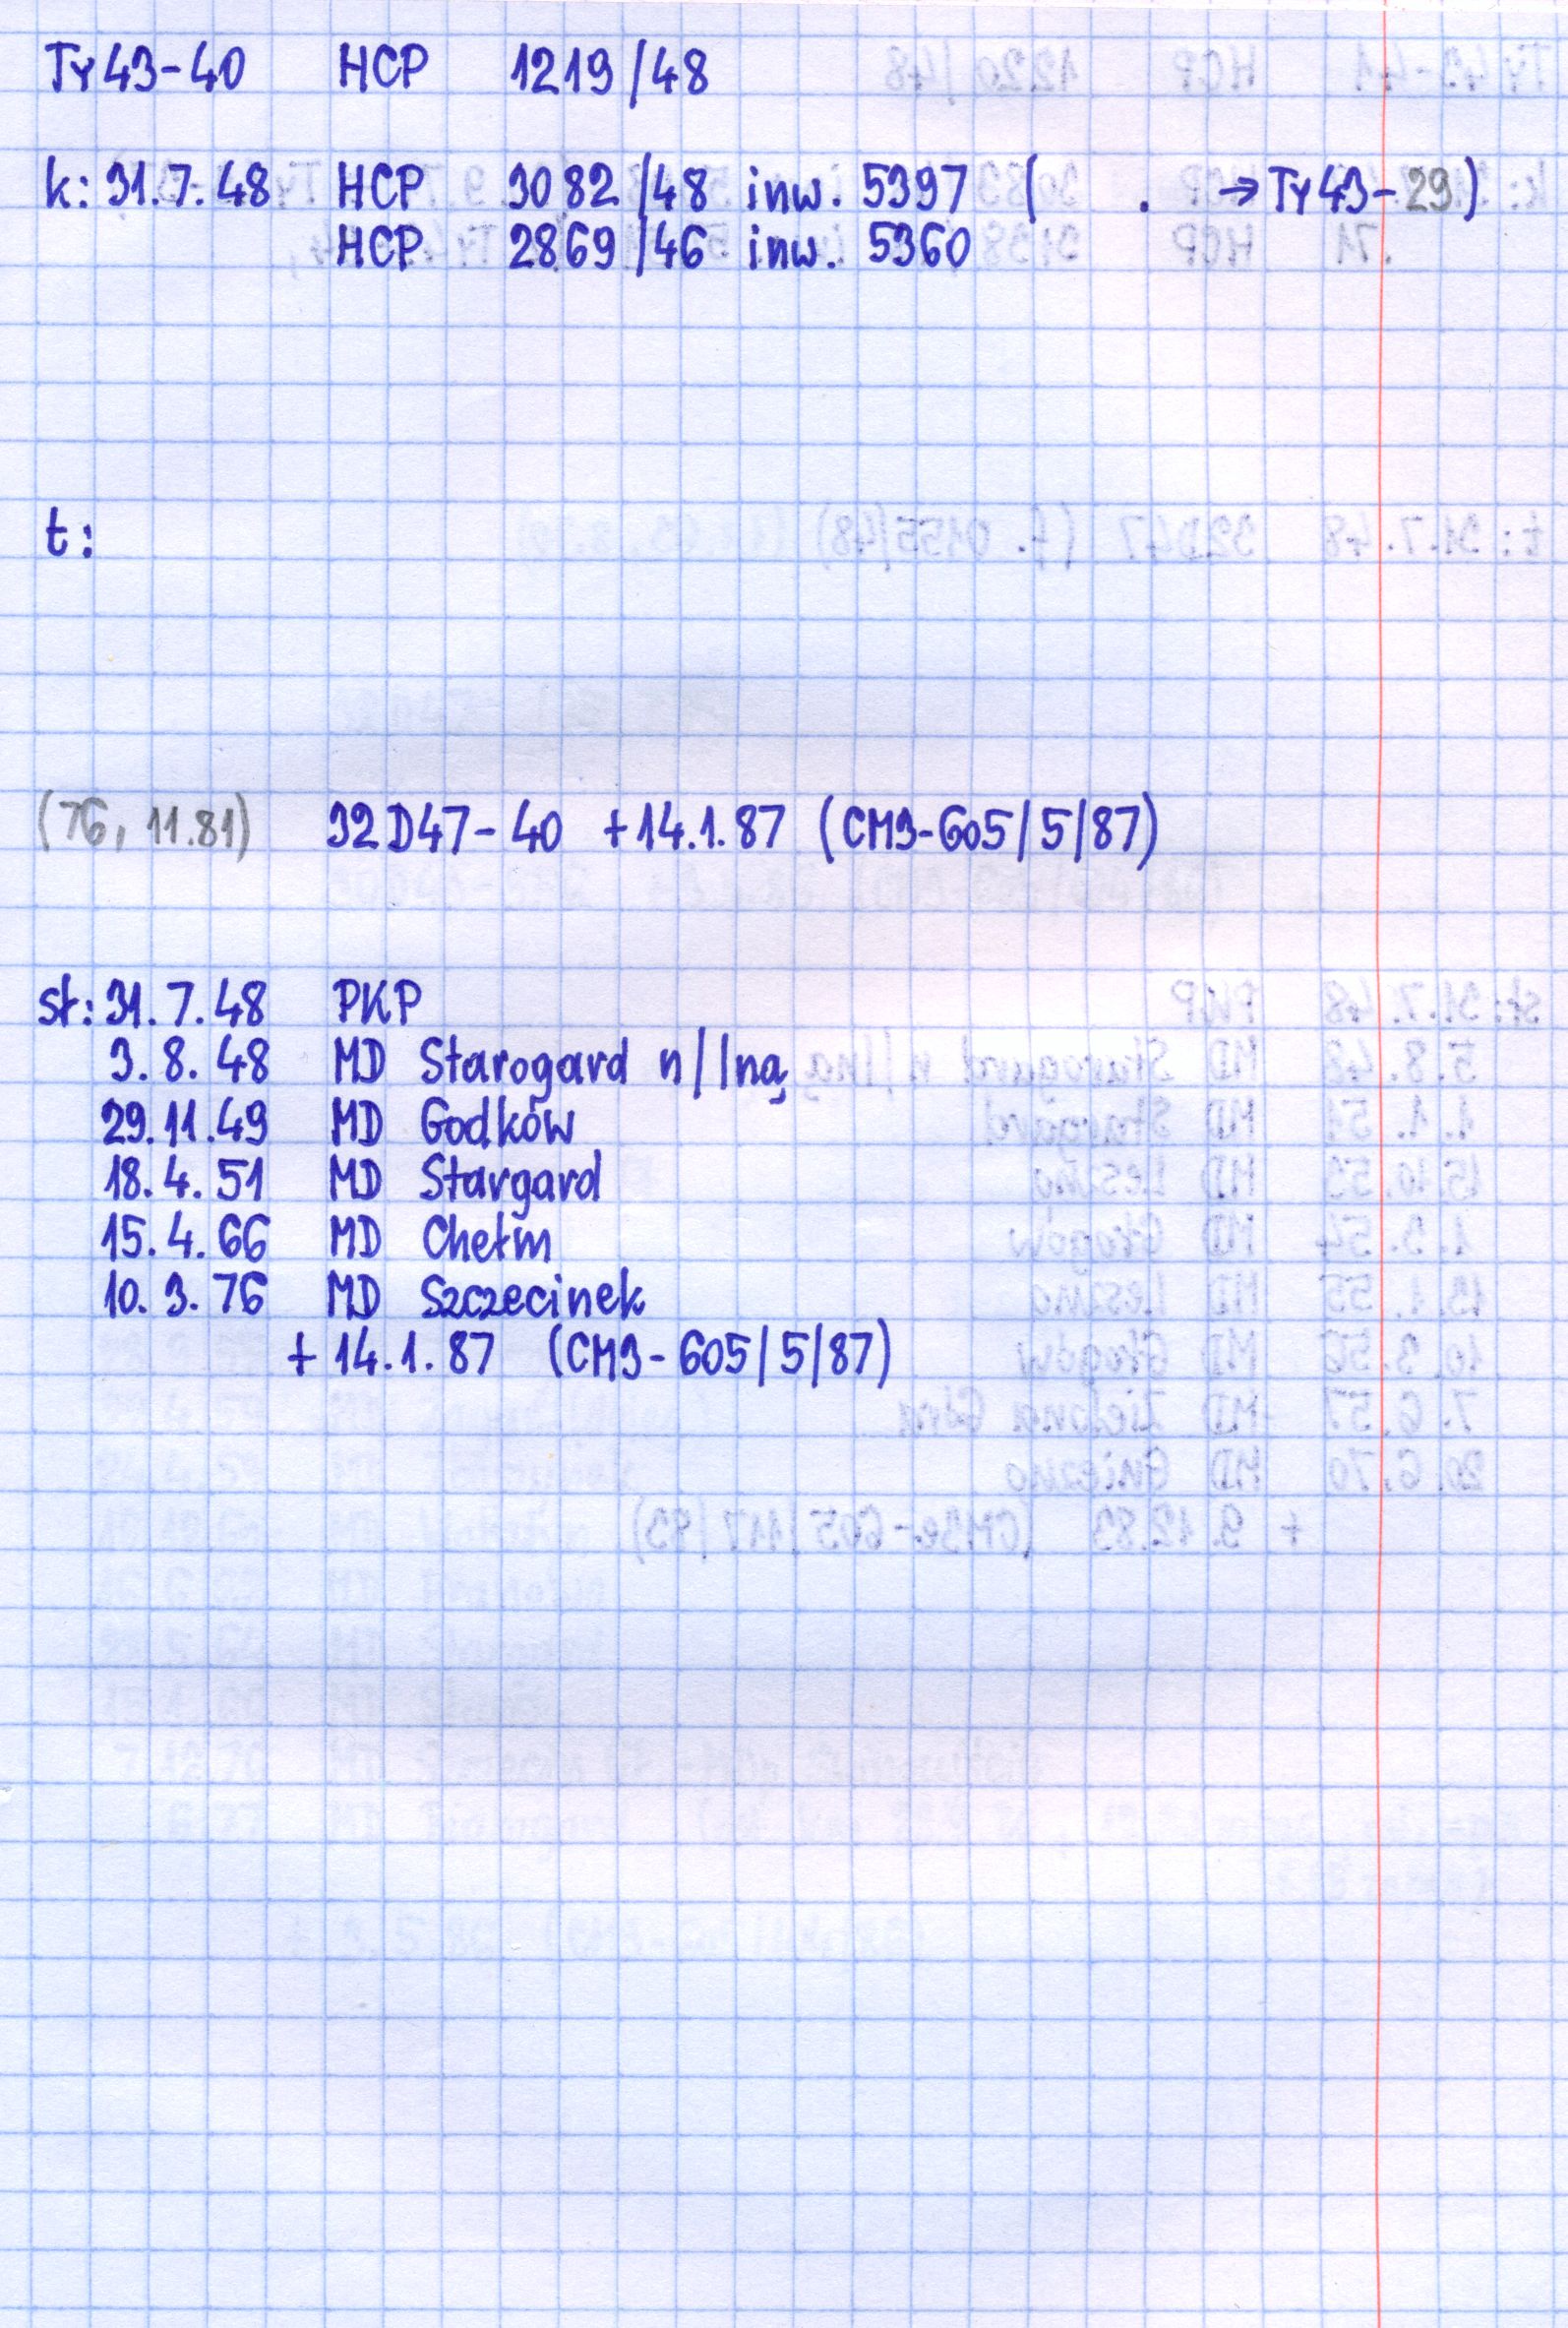 Ty43-40 HCP 1219/48
k: 31.7.48 HCP 3082/48 inw. 5397 ( . → Ty43-29)
HCP 2869/46 inw. 5360
t:
(76, 11.81) 32D47-40 +14.1.87 (CM3-605/5/87)
st: 31.7.48 PKP
3.8.48 MD Starogard n/Iną
29.11.49 MD Godków
18.4.51 MD Stargard
15.4.66 MD Chełm
10.3.76 MD Szczecinek
+ 14.1.87 (CM3-605/5/87)